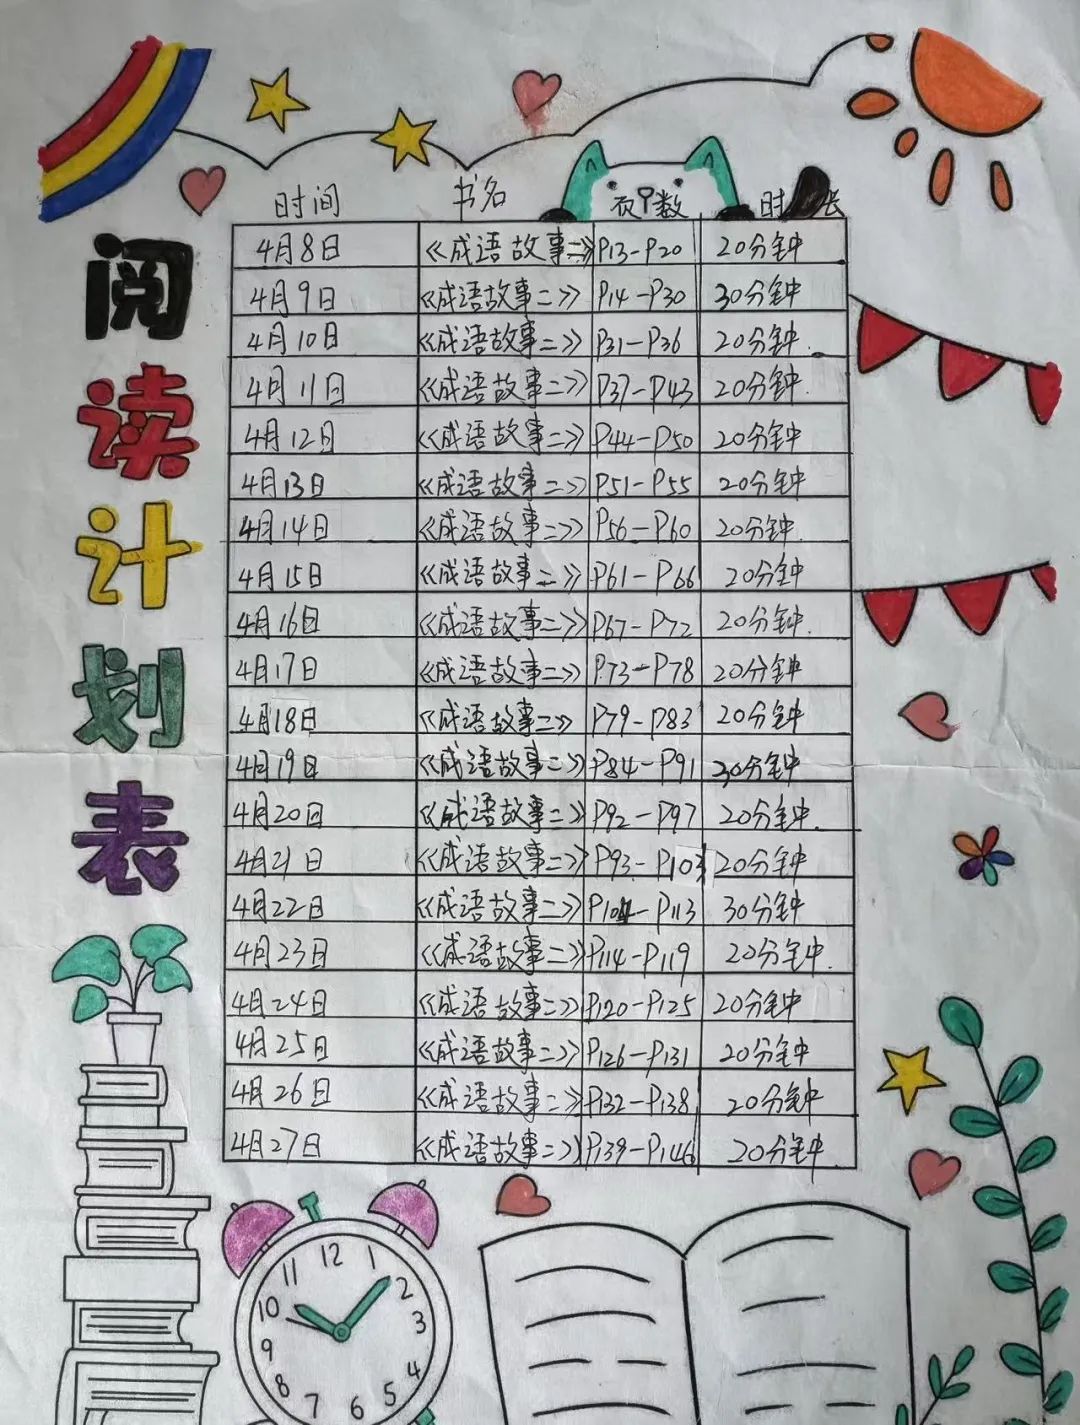 阅读计划表
时间 书名 页数 时长
4月8日 《成语故事二》 P13-P20 20分钟
4月9日 《成语故事二》 P14-P30 30分钟
4月10日 《成语故事二》 P31-P36 20分钟.
4月11日 《成语故事二》 P37-P43 20分钟.
4月12日 《成语故事二》 P44-P50 20分钟
4月13日 《成语故事二》 P51-P55 20分钟
4月14日 《成语故事二》 P56-P60 20分钟.
4月15日 《成语故事二》 P61-P66 20分钟
4月16日 《成语故事二》 P67-P72 20分钟.
4月17日 《成语故事二》 P73-P78 20分钟
4月18日 《成语故事二》 P79-P83 20分钟
4月19日 《成语故事二》 P84-P91 30分钟
4月20日 《成语故事二》 P92-P97 20分钟.
4月21日 《成语故事二》 P93-P103 20分钟
4月22日 《成语故事二》 P104-P113 30分钟
4月23日 《成语故事二》 P114-P119 20分钟.
4月24日 《成语故事二》 P120-P125 20分钟
4月25日 《成语故事二》 P126-P131 20分钟
4月26日 《成语故事二》 P132-P138 20分钟
4月27日 《成语故事二》 P139-P146 20分钟.
11 12 1
10 2
9 3
8 4
7 6 5